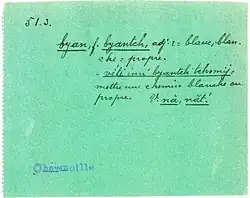 51.3.
byan, f. byantch, adj. 1= blanc, blan-
che; = propre.
- vêti inn byantch tchomij=
mettre une chemise blanche ou
propre. V. nà, nát.
Charmoille